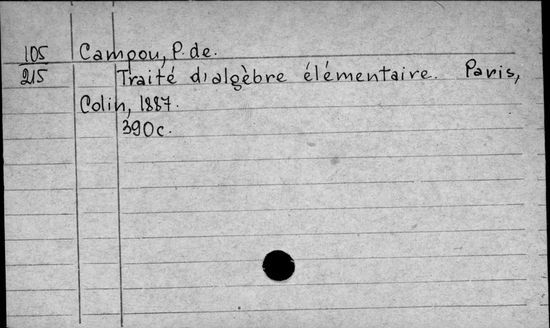 105 Campou, P. de.
215 Traité d'algèbre élémentaire. Paris,
Colin, 1887.
390c.